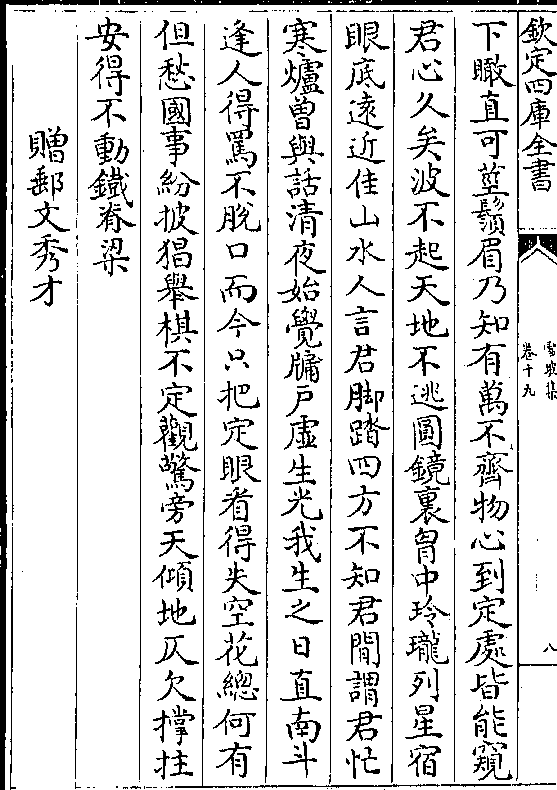 欽定四庫全書
雪坡集
卷十九
八
下瞰直可藍鬚眉乃知有萬不齊物心到定處皆能窺
君心久矣波不起天地不逃圓鏡裏胷中玲瓏列星宿
眼底遠近佳山水人言君脚踏四方不知君閒謂君忙
寒爐曽與話清夜始覺牗戸虛生光我生之日直南斗
逢人得罵不脫口而今只把定眼看得失空花總何有
但愁國事紛披猖舉棋不定觀驚旁天傾地仄欠撑拄
安得不動鐵脊梁
贈鄒文秀才